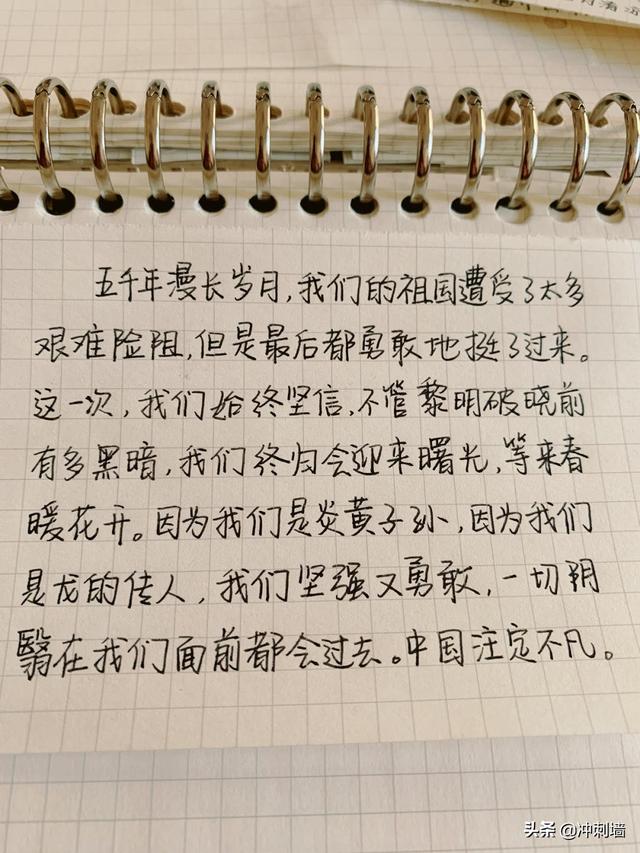 五千年漫长岁月,我们的祖国遭受了太多
艰难险阻,但是最后都勇敢地挺了过来。
这一次,我们始终坚信,不管黎明破晓前
有多黑暗,我们终归会迎来曙光,等来春
暖花开。因为我们是炎黄子孙,因为我们
是龙的传人,我们坚强又勇敢,一切阴
翳在我们面前都会过去。中国注定不凡。
头条 @冲刺墙